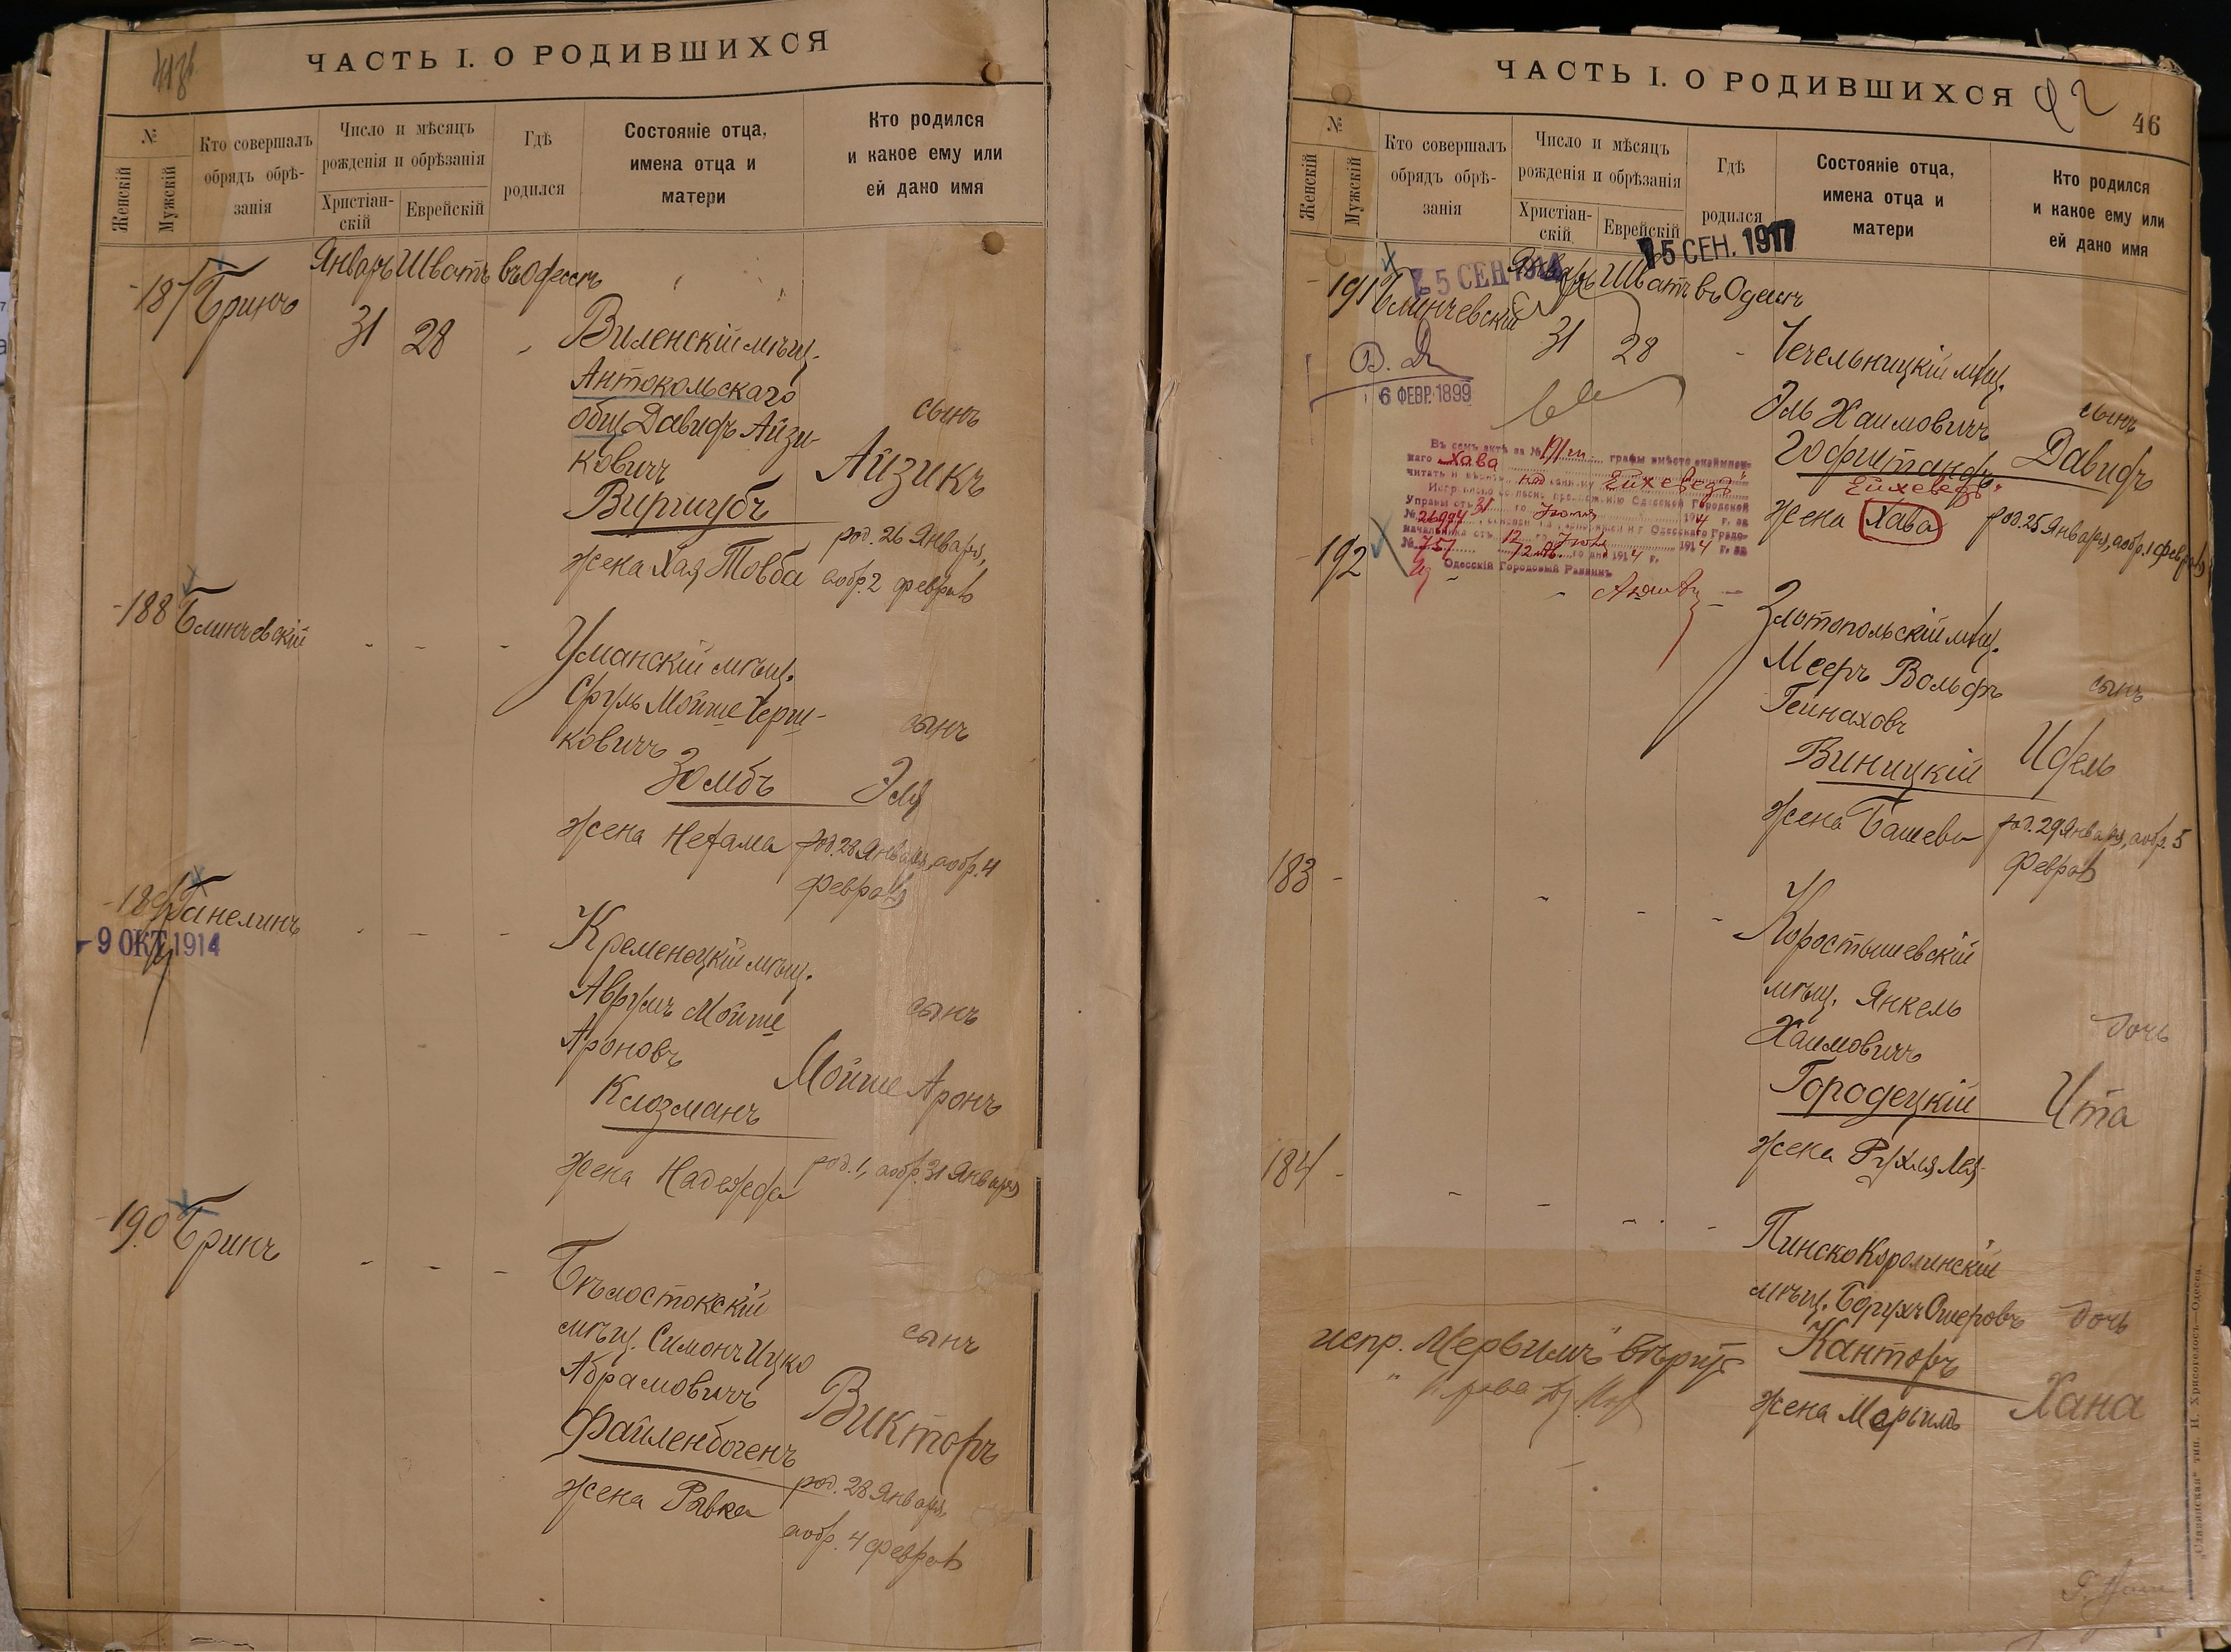 ЧАСТЬ I. О РОДИВШИХСЯ
№
Женскій
Мужскій
Кто совершалъ
обрядъ обрѣ-
занія
Число и мѣсяцъ
рожденія и обрѣзанія
Христіан-
скій
Еврейскій
Гдѣ
родился
Состояніе отца,
имена отца и
матери
Кто родился
и какое ему или
ей дано имя
Январь Шватъ въ Одессѣ
187 Бринъ 31 28 - Виленскій мѣщ.
Антокольскаго
общ Давидъ Айзи-
ковичъ
Виршубъ
жена Хая Товба
сынъ
Айзикъ
род. 26 Января,
а обр. 2 февраля
188 Блинчевскій - - - Уманскій мѣщ.
Сруль Мойше Герш-
ковичъ
Зомбъ
жена Нехама
сынъ
Эля
род. 28 Января, а обр. 4
февраля
189 Ганелинъ - - - Кременецкій мѣщ.
- 9 ОКТ 1914
Аврумъ Мойше
Ароновъ
Клозманъ
жена Надежда
сынъ
Мойше Аронъ
род. 1, а обр. 31 Января
190 Бринъ - - - Бѣлостокскій
мѣщ. Симонъ Ицко
Абрамовичъ
Файленбогенъ
жена Рывка
сынъ
Викторъ
род. 28 Января,
а обр. 4 февраля
ЧАСТЬ I. О РОДИВШИХСЯ
46
№
Женскій
Мужскій
Кто совершалъ
обрядъ обрѣ-
занія
Число и мѣсяцъ
рожденія и обрѣзанія
Христіан-
скій
Еврейскій
Гдѣ
родился
Состояніе отца,
имена отца и
матери
Кто родился
и какое ему или
ей дано имя
5 СЕН. 1917
Январь Шватъ въ Одессѣ
191 Блинчевскій 31 28 - Чечельницкій мѣщ.
6 ФЕВР. 1899
Эль Хаимовичъ
Гофштандъ
Ейхеведъ
жена Хава
сынъ
Давидъ
род. 25 Января, а обр. 1 февраля
Въ семъ актѣ за № 191 м графы вмѣсто
Хава
читать Ейхеведъ
Одесской Городской
Управы отъ 31 Іюля 1914 г. за
№ 26994
Одесскаго Градо-
начальника отъ 12 1914 г. за
№ 757 1914 г.
Одесскій Городовый Раввинъ
192 - - - Златопольскій мѣщ.
Мееръ Вольфъ
Гейнаховъ
Виницкій
жена Башева
сынъ
Идель
род. 29 Января, а обр. 5
февраля
183 - - - - Коростышевскій
мѣщ. Янкель
Хаимовичъ
Городецкій
жена Рухля Лея
дочь
Ита
184 - - - - - Пинско Каролинскій
мѣщ. Борухъ Ошеровъ
Канторъ
жена Марьимъ
дочь
Хана
испр. "Мерьимъ" вѣрую
"Славянская" тип. Н. Хрисогелосъ—Одесса.